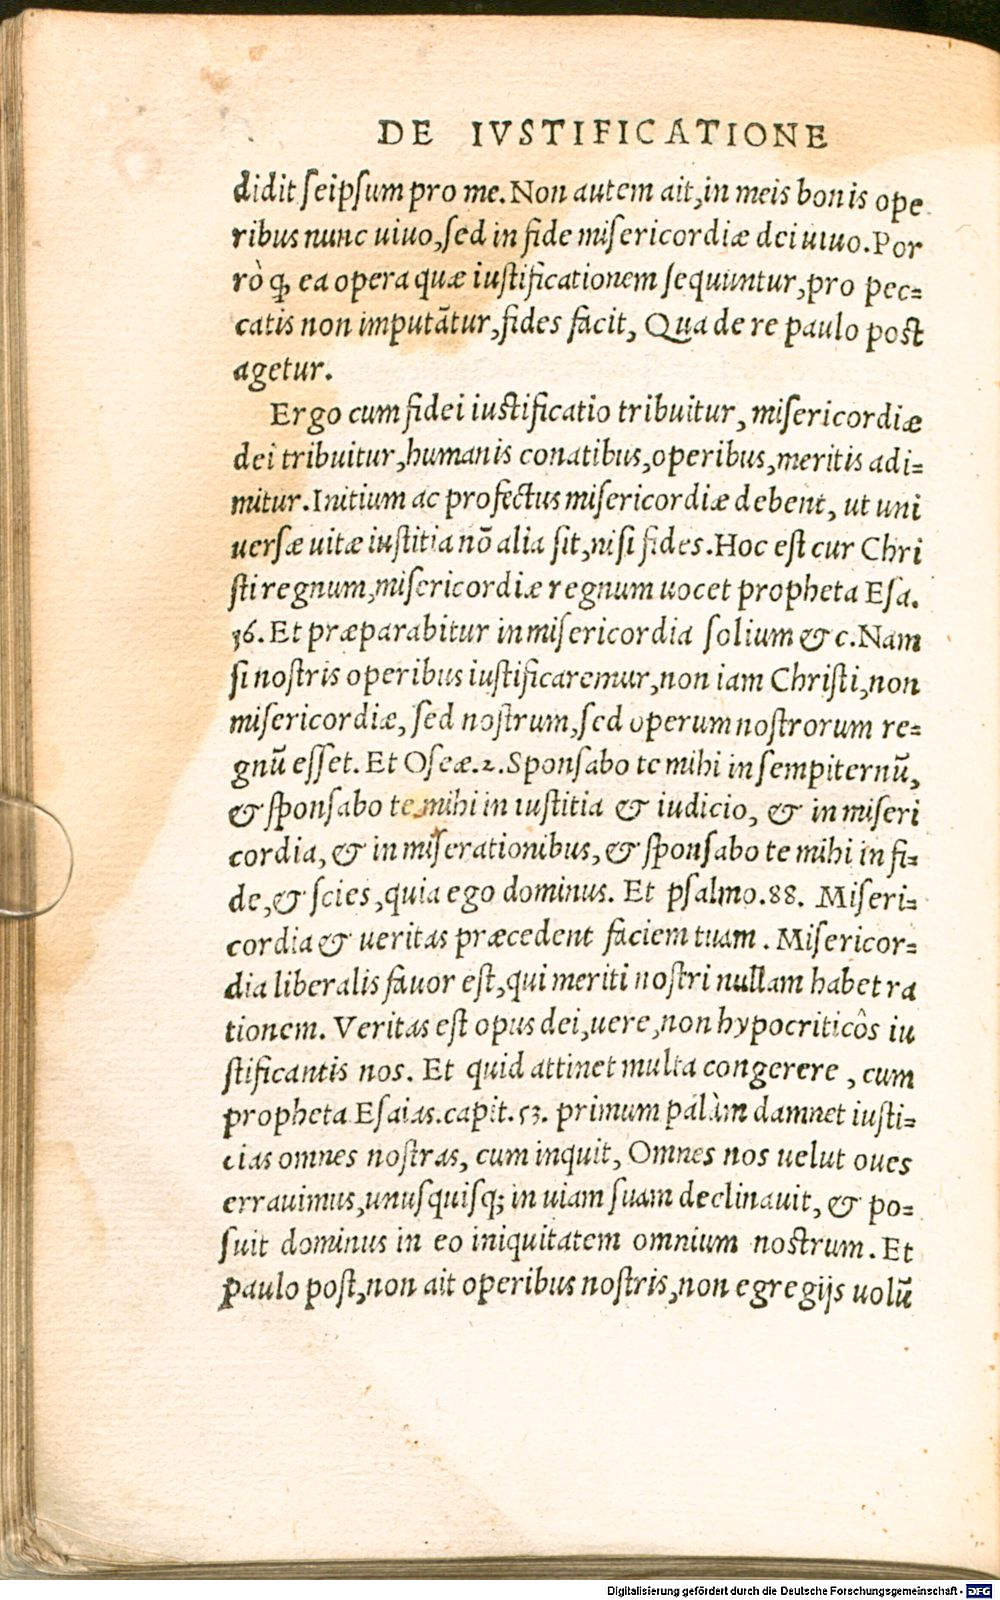 DE IVSTIFICATIONE
didit seipsum pro me. Non autem ait, in meis bonis ope
ribus nunc uiuo, sed in fide misericordiæ dei uiuo. Por
rò ꝙ ea opera quæ iustificationem sequuntur, pro pec=
catis non imputātur, fides facit, Qua de re paulo post
agetur.
Ergo cum fidei iustificatio tribuitur, misericordiæ
dei tribuitur, humanis conatibus, operibus, meritis adi=
mitur. Initium ac profectus misericordiæ debent, ut uni
uersæ uitæ iustitia nō alia sit, nisi fides. Hoc est cur Chri
sti regnum, misericordiæ regnum uocet propheta Esa.
36. Et præparabitur in misericordia solium & c. Nam
si nostris operibus iustificaremur, non iam Christi, non
misericordiæ, sed nostrum, sed operum nostrorum re=
gnū esset. Et Oseæ. 2. Sponsabo te mihi in sempiternū,
& sponsabo te mihi in iustitia & iudicio, & in miseri
cordia, & in miserationibus, & sponsabo te mihi in fi=
de, & scies, quia ego dominus. Et psalmo. 88. Miseri=
cordia & ueritas præcedent faciem tuam. Misericor=
dia liberalis fauor est, qui meriti nostri nullam habet ra
tionem. Veritas est opus dei, uere, non hypocriticôs iu
stificantis nos. Et quid attinet multa congerere, cum
propheta Esaias. capit. 53. primum palàm damnet iusti=
cias omnes nostras, cum inquit, Omnes nos uelut oues
errauimus, unusquisq; in uiam suam declinauit, & po=
suit dominus in eo iniquitatem omnium nostrum. Et
paulo post, non ait operibus nostris, non egregijs uolū
Digitalisierung gefördert durch die Deutsche Forschungsgemeinschaft - DFG